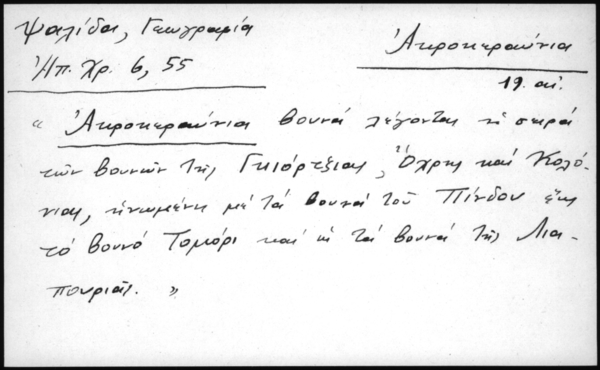 Ψαλίδα, Γεωγραφία
Ἠπ. Χρ. 6, 55
Ἀκροκεραύνια
19. αἰ.
« Ἀκροκεραύνια βουνά λέγονται ἡ σειρά
τῶν βουνῶν τῆς Γκιόρτζιας, Ὄχρης καί Κολό-
νιας, ἡνωμένη μέ τά βουνά τοῦ Πίνδου ἕως
τό βουνό Τομόρι καί ἡ τά βουνά τῆς Λια-
πουριᾶς. »